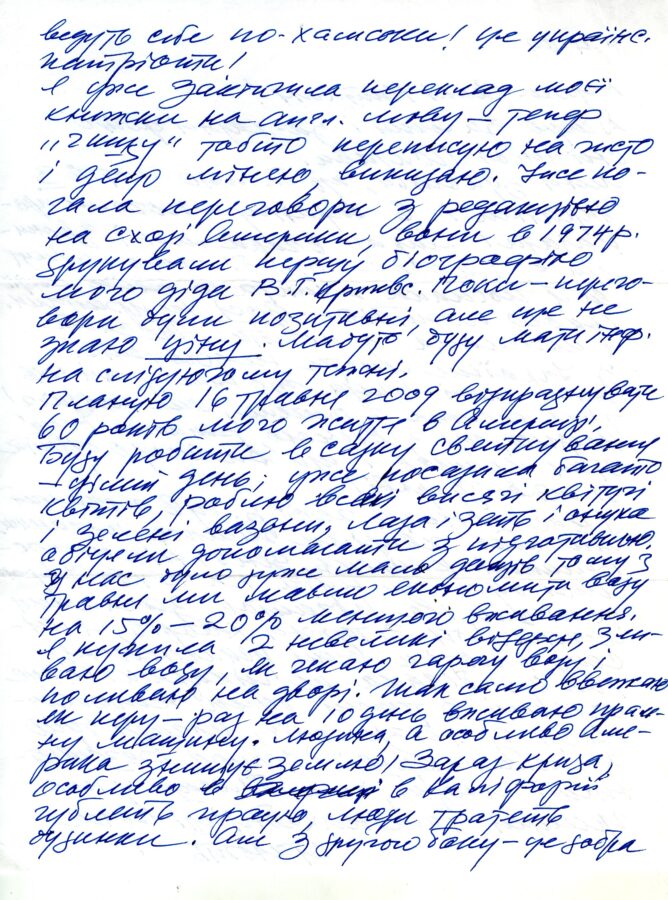 ведуть себе по-хамськи! це українс.
патріоти!
Я уже закінчила переклад моєї
книжки на англ. мову – тепер
„чищу“ тобто переписую на чисто
і дещо міняю, викидаю. Уже по-
чала переговори з редакцією
на сході Америки, вони в 1974 р.
друкували першу біографію
мого діда В.Г. Поки – перего-
вори були позитивні, але ще не
знаю ціну. Мабуть буду мати інф.
на слідуючому тижні.
Планую 16 травня 2009 відпразнувати
60 років мого життя в Америці.
Буду робити в саду святкування
– цілий день, уже посадила багато
квітів, роблю висячі квітучі
і зелені вазони, і зять і онука
обіцяли допомагати з підготовкою.
У нас було дуже мало дощів тому з
травня ми маємо економити воду
на 15% – 20% меншого вживання.
Я купила 2 невеликі відерця, зли-
ваю воду, як чекаю гарячу воду і
поливаю на дворі. Так само вважаю
як перу – раз на 10 день вживаю праль-
ну машину. Людина, а особливо Аме-
рика знищує землю! Зараз криза,
особливо в Каліфорнії
гублять працю, люди тратять
будинки. Але з другого боку – це добра